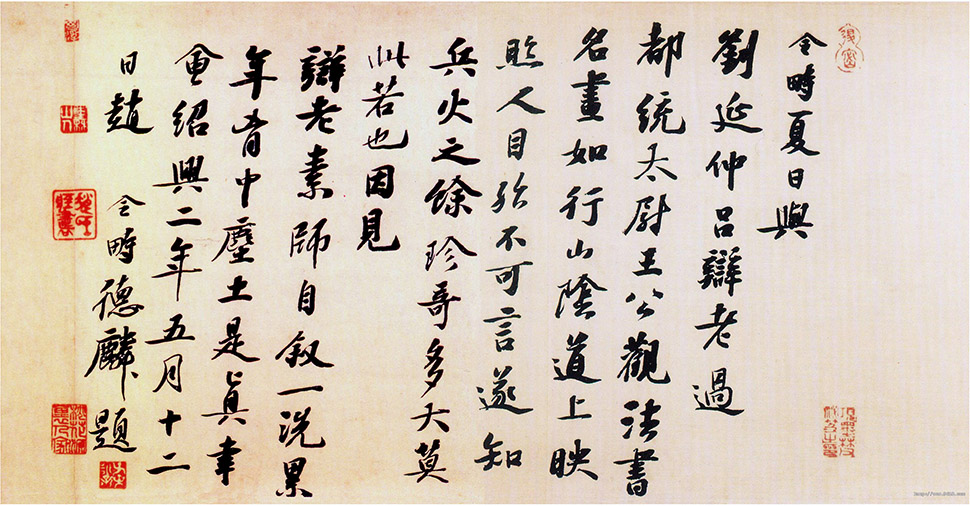 令畤夏日與
劉延仲呂辯老過
都統太尉王公觀法書
名畫如行山陰道上映
照人目不可言遂知
兵火之餘珍奇多大莫
此若也因見
辯老素師自叙一洗累
年胷中塵土是真幸
會紹興二年五月十二
日趙 令畤德麟題